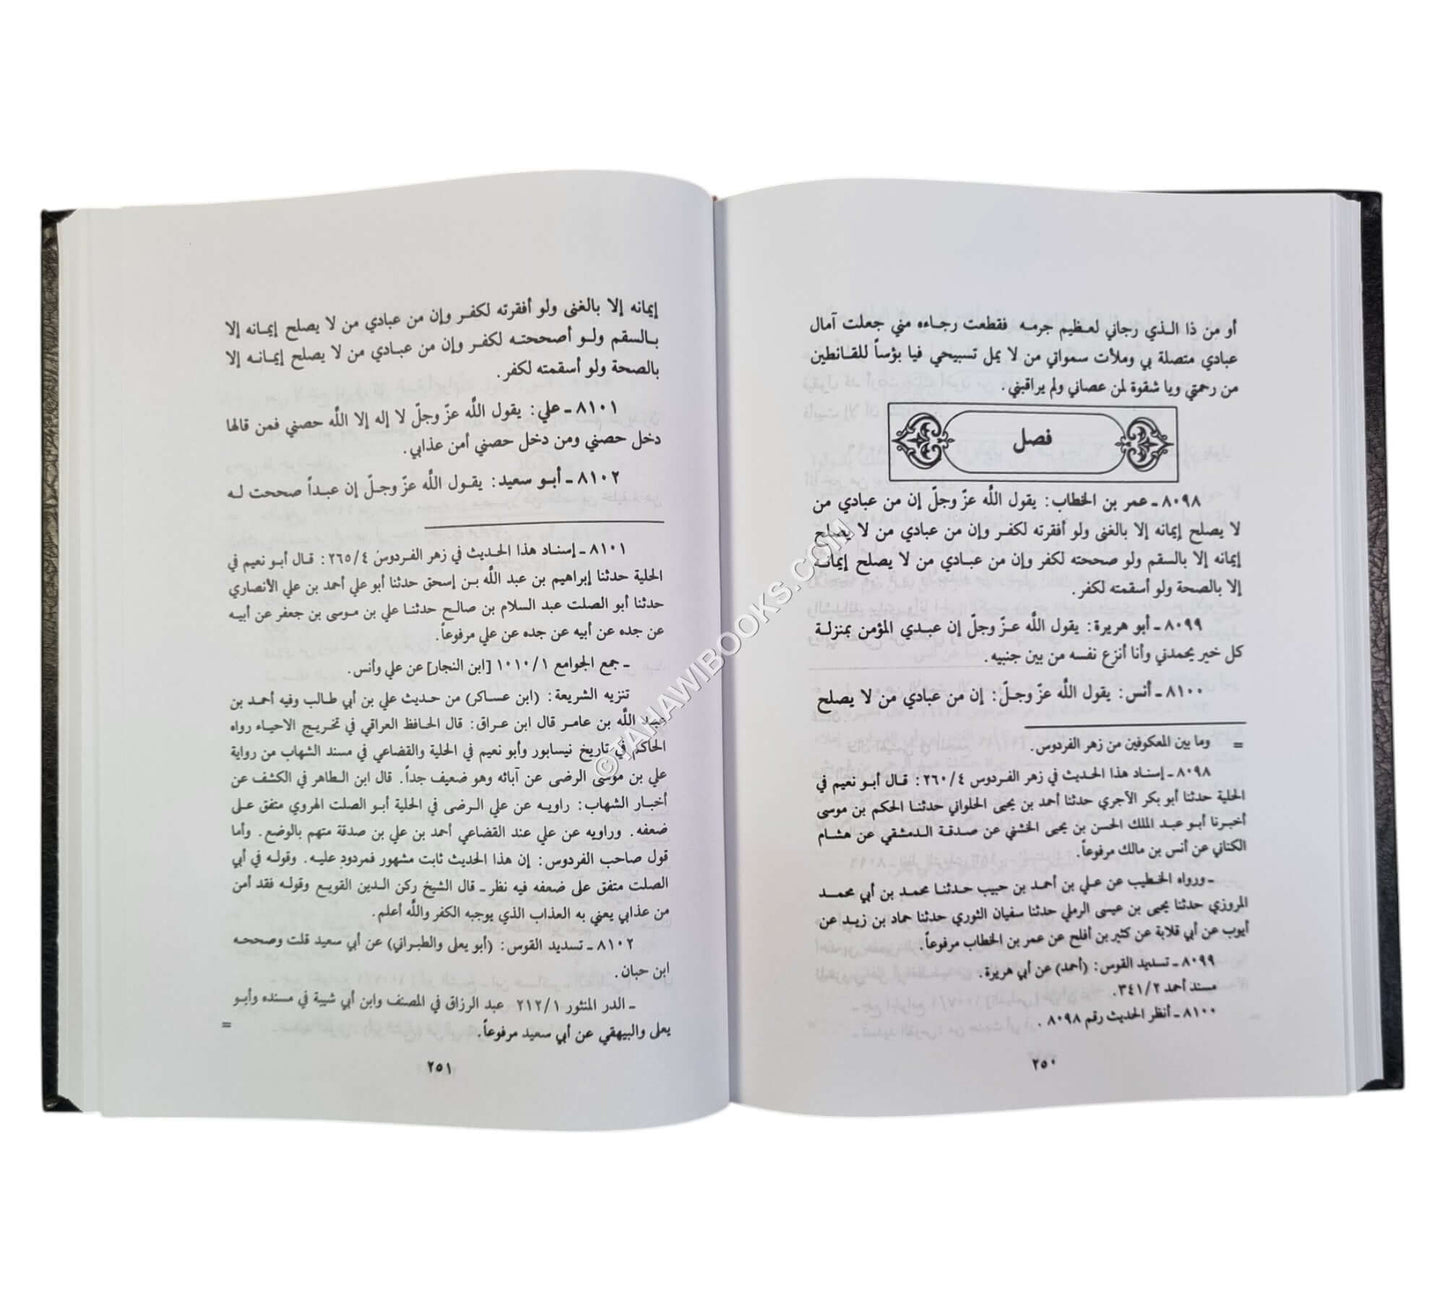 أو من ذا الذي رجاني لعظيم جرمه فقطعت رجاءه مني جعلت آمال
عبادي متصلة بي وملأت سمواتي من لا يمل تسبيحي فيا بؤساً للقانطين
من رحمتي ويا شقوة لمن عصاني ولم يراقبني.
فصل
٨٠٩٨ ـ عمر بن الخطاب: يقول اللَّه عزّ وجلّ إن من عبادي من
لا يصلح إيمانه إلا بالغنى ولو أفقرته لكفر وإن من عبادي من لا يصلح
إيمانه إلا بالسقم ولو صححته لكفر وإن من عبادي من لا يصلح إيمانه
إلا بالصحة ولو أسقمته لكفر.
٨٠٩٩ ـ أبو هريرة: يقول اللَّه عزّ وجلّ إن عبدي المؤمن بمنزلة
كل خير يحمدني وأنا أنزع نفسه من بين جنبيه.
٨١٠٠ ـ أنس: يقول اللَّه عزّ وجلّ: إن من عبادي من لا يصلح
= وما بين المعكوفين من زهر الفردوس.
٨٠٩٨ ـ إسناد هذا الحديث في زهر الفردوس ٢٦٠/٤: قال أبو نعيم في
الحلية حدثنا أبو بكر الآجري حدثنا أحمد بن يحيى الحلواني حدثنا الحكم بن موسى
أخبرنا أبو عبد الملك الحسن بن يحيى الخشني عن صدقة الدمشقي عن هشام
الكتاني عن أنس بن مالك مرفوعاً.
ـ ورواه الخطيب عن علي بن أحمد بن حبيب حدثنا محمد بن أبي محمد
المروزي حدثنا يحيى بن عيسى الرملي حدثنا سفيان الثوري حدثنا حماد بن زيد عن
أيوب عن أبي قلابة عن كثير بن أفلح عن عمر بن الخطاب مرفوعاً.
٨٠٩٩ ـ تسديد القوس: (أحمد) عن أبي هريرة.
مسند أحمد ٣٤١/٢.
٨١٠٠ ـ أنظر الحديث رقم ٨٠٩٨.
٢٥٠
إيمانه إلا بالغنى ولو أفقرته لكفر وإن من عبادي من لا يصلح إيمانه إلا
بالسقم ولو أصححته لكفر وإن من عبادي من لا يصلح إيمانه إلا
بالصحة ولو أسقمته لكفر.
٨١٠١ ـ علي: يقول اللَّه عزّ وجلّ لا إله إلا اللَّه حصني فمن قالها
دخل حصني ومن دخل حصني أمن عذابي.
٨١٠٢ ـ أبو سعيد: يقول اللَّه عزّ وجلّ إن عبداً صححت له
٨١٠١ ـ إسناد هذا الحديث في زهر الفردوس ٢٦٥/٤: قال أبو نعيم في
الحلية حدثنا إبراهيم بن عبد اللَّه بن إسحق حدثنا أبو علي أحمد بن علي الأنصاري
حدثنا أبو الصلت عبد السلام بن صالح حدثنا علي بن موسى بن جعفر عن أبيه
عن جده عن أبيه عن جده عن علي مرفوعاً.
ـ جمع الجوامع ١٠١٠/١ [ابن النجار] عن علي وأنس.
تنزيه الشريعة: (ابن عساكر) من حديث علي بن أبي طالب وفيه أحمد بن
عبد اللَّه بن عامر قال ابن عراق: قال الحافظ العراقي في تخريج الاحياء رواه
الحاكم في تاريخ نيسابور وأبو نعيم في الحلية والقضاعي في مسند الشهاب من رواية
علي بن موسى الرضى عن آبائه وهو ضعيف جداً. قال ابن الطاهر في الكشف عن
أخبار الشهاب: راويه عن علي الرضى في الحلية أبو الصلت الهروي متفق على
ضعفه. وراويه عن علي عند القضاعي أحمد بن علي بن صدقة متهم بالوضع. وأما
قول صاحب الفردوس: إن هذا الحديث ثابت مشهور فمردود عليه. وقوله في أبي
الصلت متفق على ضعفه فيه نظر ـ قال الشيخ ركن الدين القويع وقوله فقد أمن
من عذابي يعني به العذاب الذي يوجبه الكفر واللَّه أعلم.
٨١٠٢ ـ تسديد القوس: (أبو يعلى والطبراني) عن أبي سعيد قلت وصححه
ابن حبان.
ـ الدر المنثور ٢١٢/١ عبد الرزاق في المصنف وابن أبي شيبة في مسنده وأبو
يعلى والبيهقي عن أبي سعيد مرفوعاً. =
٢٥١
©TAHAWIBOOKS.COM